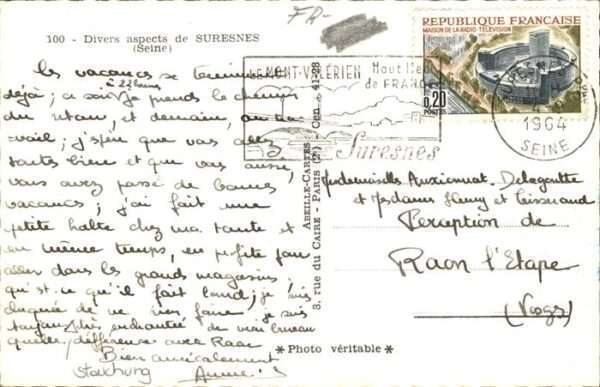 FR-
100 - Divers aspects de SURESNES
(Seine)
Les vacances se terminent
à 22 heures
déjà ; ce soir je prends le chemin
du retour, et demain, au tra
vail ; j'espère que vous allez
toutes bien et que vous aussi,
vous avez passé de bonnes
vacances ; j'ai fait une
petite halte chez ma tante et
en même temps, en profite pour
aller dans les grands magasins ;
qu'est-ce qu'il fait lourd ; je suis
de ne rien faire. je suis
toujours très enchantée de mon bureau
quelle différence avec Raon
Bien amicalement
ABEILLE-CARTES
8, rue du CAIRE - PARIS (2e) - Cen. 41-28
LE MONT-VALÉRIEN
Haut lieu
de FRANCE
Suresnes
RÉPUBLIQUE FRANÇAISE
MAISON DE LA RADIO-TÉLÉVISION
0,20
POSTES
1964
SEINE
Mesdemoiselles Delagoutte
et Mesdames Henry et Tisserand
Perception de
Raon l'Etape
(Vosges)
*Photo véritable*